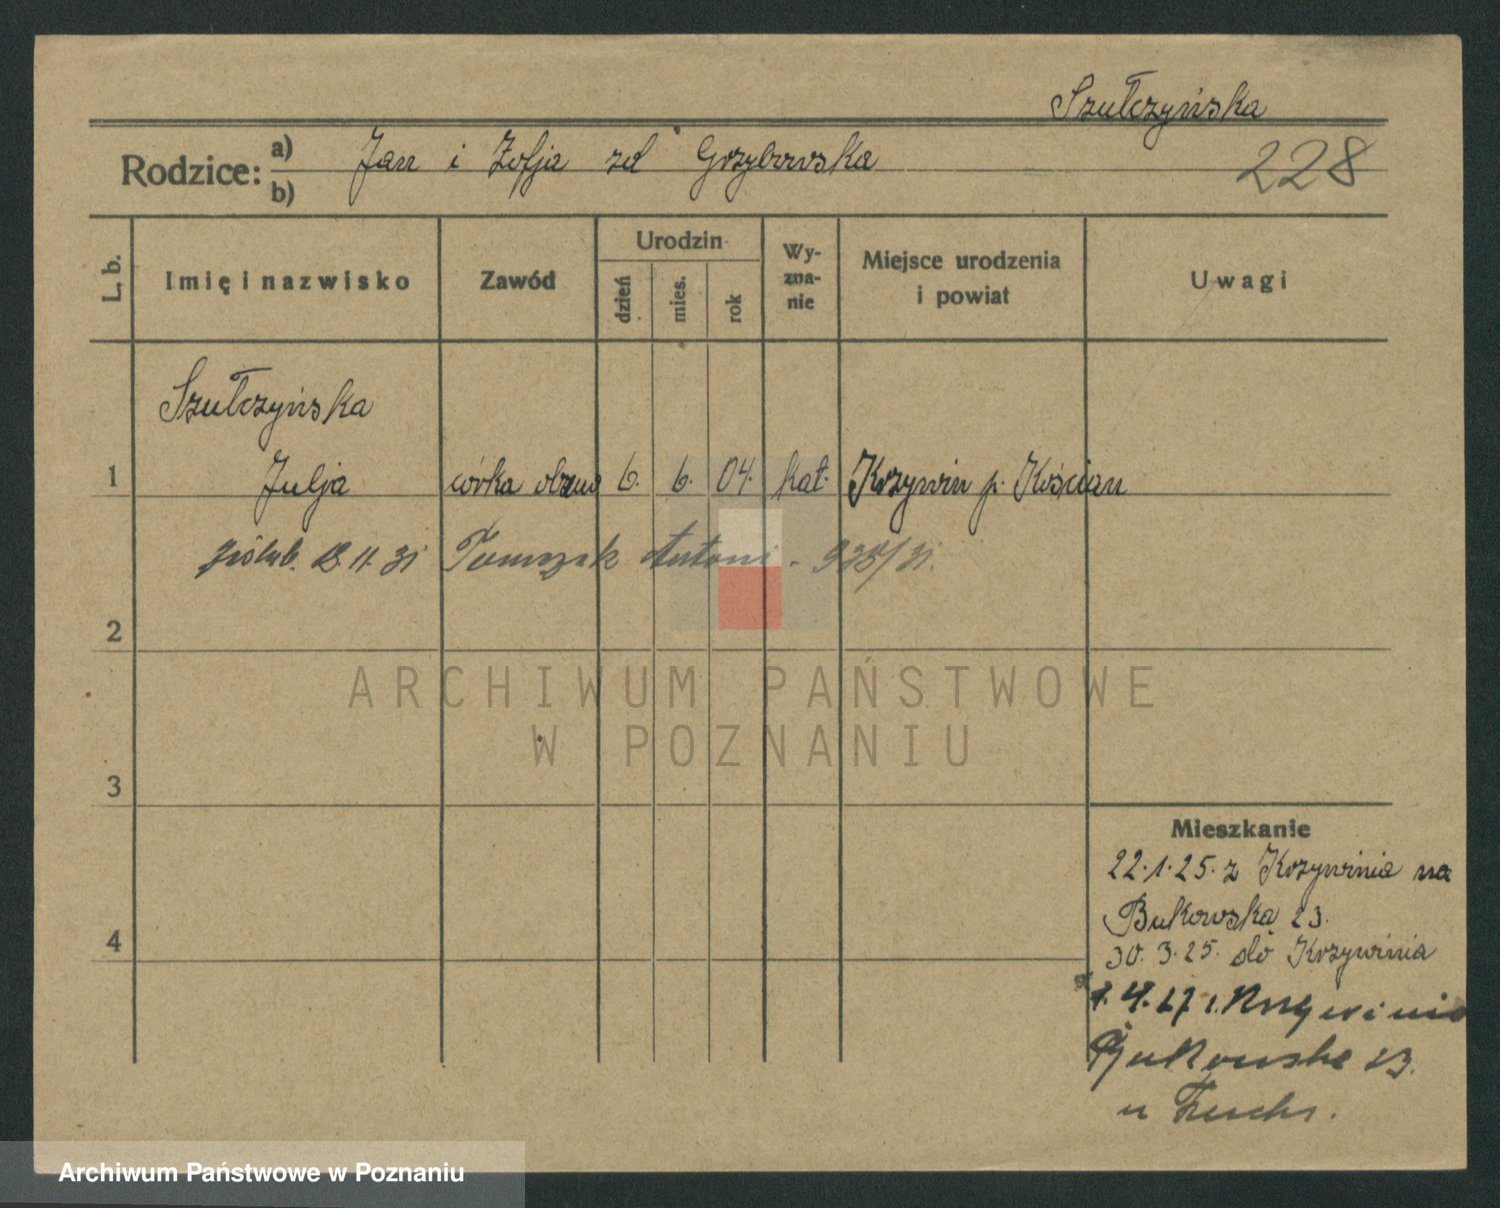 Szułczyńska
Rodzice: a) b) Jan i Zofja zd Grzybowska
228
L. b.
Imię i nazwisko
Zawód
Urodzin
dzień
mies.
rok
Wy-
zna-
nie
Miejsce urodzenia
i powiat
Uwagi
Szułczyńska
1 Julja córka 6. 6. 04. kat. Krzywiń p. Kościan
11. 31 Tomczak Antoni -
2
ARCHIWUM PAŃSTWOWE
W POZNANIU
3
Mieszkanie
22.1.25. z Krzywinia na
Bukowską 23.
4
30.3.25. do Krzywinia
1.4.27 z Krzywinia
Bukowska 23.
u Fuchs.
Archiwum Państwowe w Poznaniu